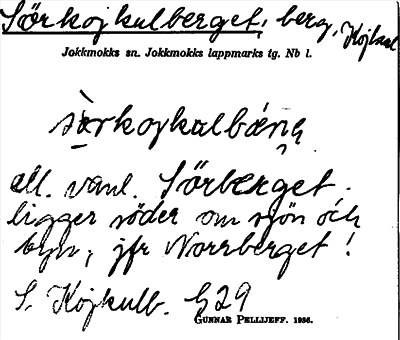 Sörkojkulberget, berg, Kojkul
Jokkmokks sn. Jokkmokks lappmarks tg. Nb l.
sò̱rkojkulbæ̀rg
ell. vanl. Sörberget.
ligger söder om sjön och
byn, jfr Norrberget!
S. Kojkulb. G 29
GUNNAR PELLIJEFF. 1936.